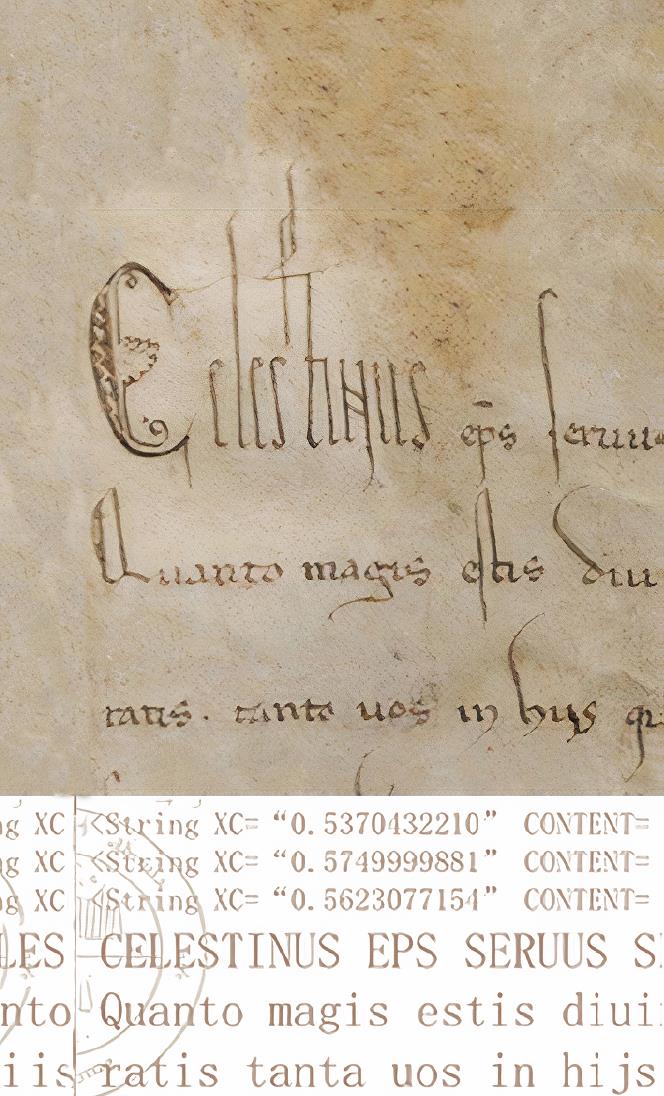 Celestinus ep̄s seruu
Quanto magis estis diu
ratis. tanto uos in hijs qu
ng XC <String XC= “0.5370432210” CONTENT=
ng XC <String XC= “0.5749999881” CONTENT=
ng XC <String XC= “0.5623077154” CONTENT=
LES CELESTINUS EPS SERUUS S
nto Quanto magis estis diui
iis ratis tanta uos in hijs